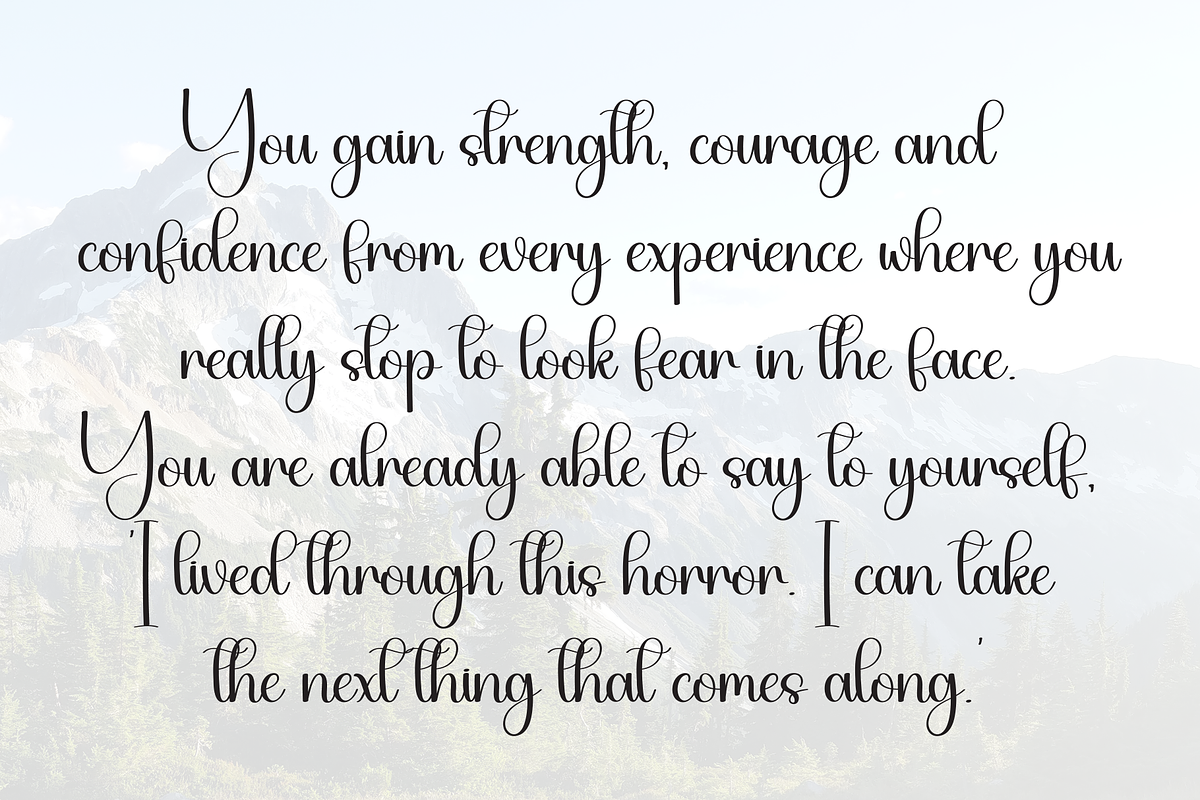 You gain strength, courage and
confidence from every experience where you
really stop to look fear in the face.
You are already able to say to yourself,
'I lived through this horror. I can take
the next thing that comes along.'